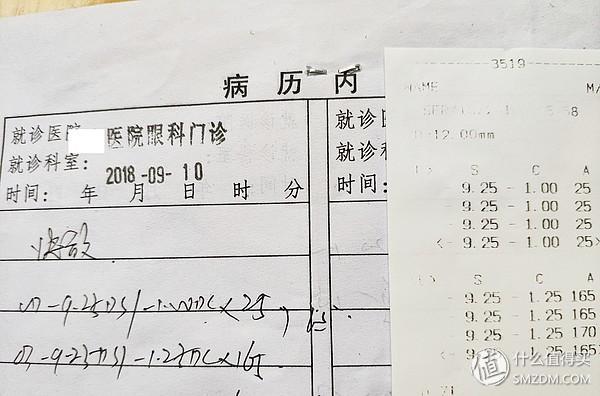 病 历 内
就诊医院 医院眼科门诊
就诊科室:
2018-09-10
时间: 年 月 日 时 分
-9.25DS/-1.00DC×25
-9.25DS/-1.25DC×165
就诊医
就诊科
时间:
3519
NAME M/
12.00mm
S C A
- 9.25 - 1.00 25
- 9.25 - 1.00 25
- 9.25 - 1.00 25
<- 9.25 - 1.00 25>
S C A
- 9.25 - 1.25 165
- 9.25 - 1.25 165
- 9.25 - 1.25 170
<- 9.25 - 1.25 165>
71
值 什么值得买
SMZDM.COM